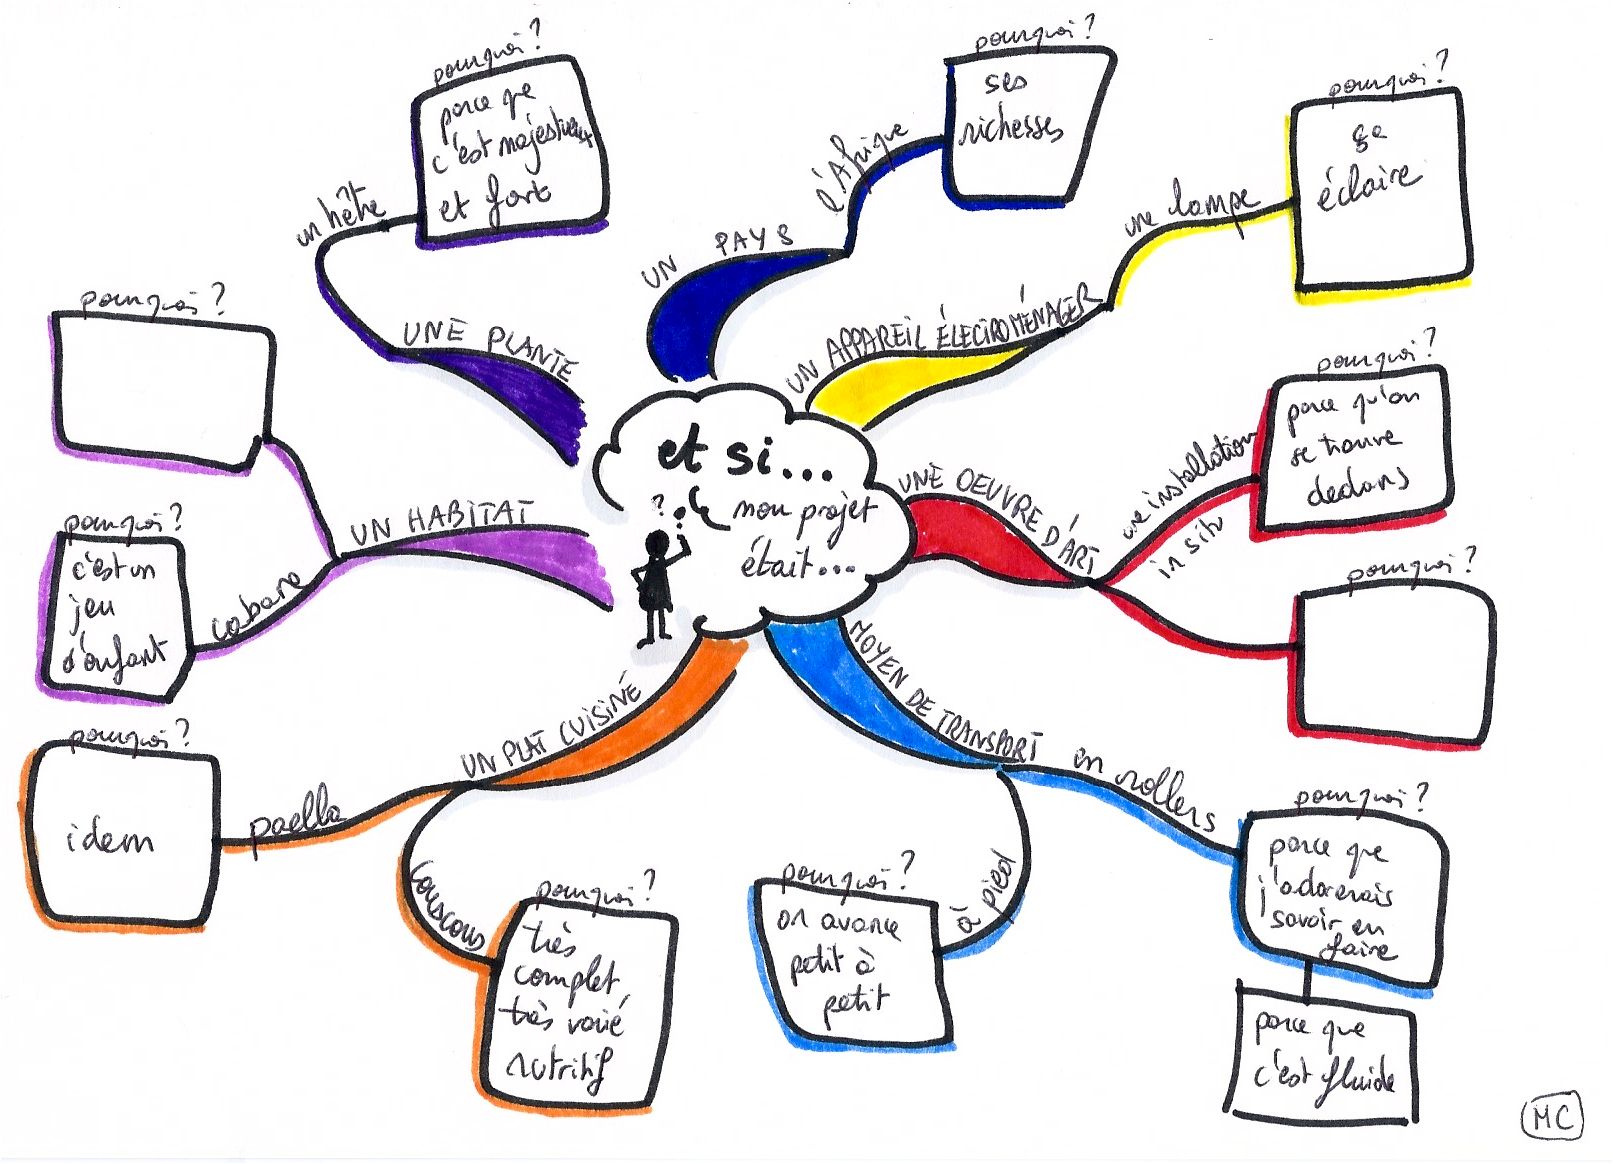 et si...
mon projet
était...
?
UN PAYS
l'Afrique
pourquoi ?
ses
richesses
UN APPAREIL ÉLECTROMÉNAGER
une lampe
pourquoi ?
ça
éclaire
UNE OEUVRE D'ART
une installation
in situ
pourquoi ?
parce qu'on
se trouve
dedans
pourquoi ?
MOYEN DE TRANSPORT
en rollers
pourquoi ?
parce que
j'adorerais
savoir en
faire
parce que
c'est fluide
à pied
pourquoi ?
on avance
petit à
petit
UN PLAT CUISINÉ
couscous
pourquoi ?
très
complet
très varié
nutritif
paella
pourquoi ?
idem
UN HABITAT
cabane
pourquoi ?
c'est un
jeu
d'enfant
pourquoi ?
UNE PLANTE
un hêtre
pourquoi ?
parce que
c'est majestueux
et fort
MC